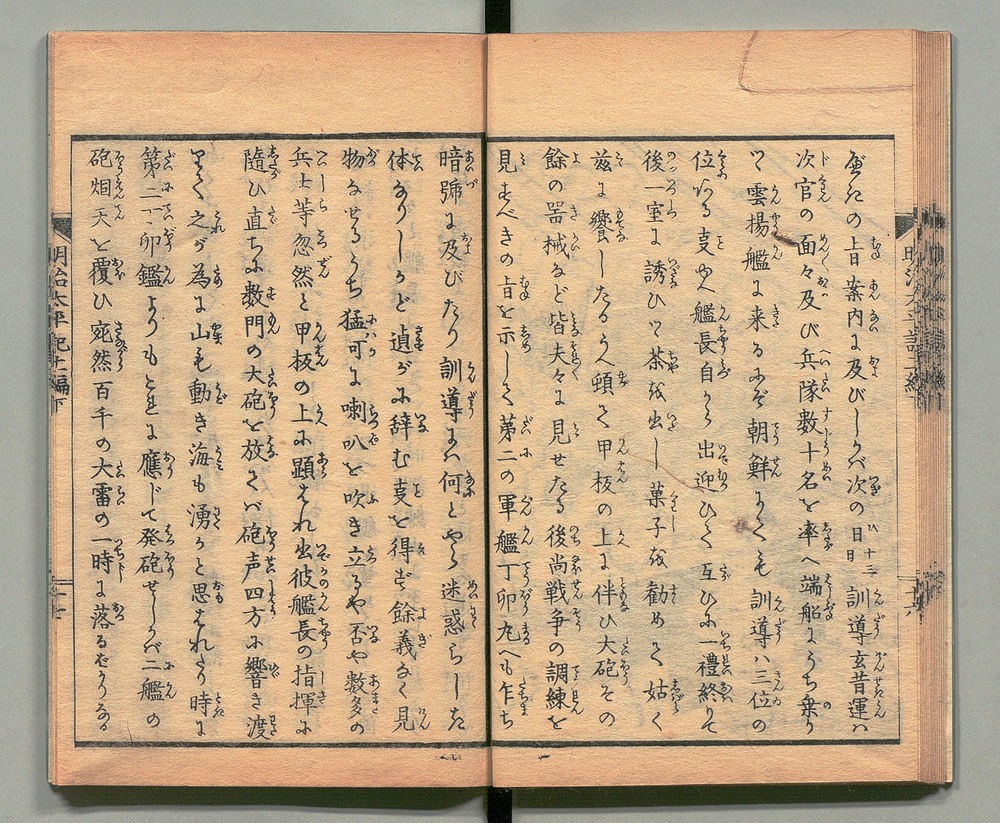 度たの旨案内に及びしかバ次の日十三日訓導玄昔運ハ
次官の面々及び兵隊数十名を率へ端船にうち乗り
て雲揚艦に来るにぞ朝鮮にても訓導ハ三位の
位なる支ゆへ艦長自から出迎ひて互ひに一禮終りて
後一室に誘ひて茶を出し菓子を勧めて姑く
茲に饗したるうへ頓て甲板の上に伴ひ大砲その
餘の噐械など皆夫々に見せたる後尚戦争の調練を
見すべきの旨を示して苐二の軍艦丁卯丸へも乍ち
暗號に及びたり訓導にハ何とやら迷惑らしき
体なりしかど遉がに辞む支を得ず餘義なく見
物なせるうち猛可に喇叭を吹き立るや否や数多の
兵士等忽然と甲板の上に顕はれ出彼艦長の指揮に
隨ひ直ちに数門の大砲を放てバ砲声四方に響き渡
りて之が為に山も動き海も湧かと思はれたり時に
第二丁卯鑑よりもこれに應じて発砲せしかバ二艦の
砲烟天を覆ひ宛然百千の大雷の一時に落るばかりなる
明治太平記十一編下